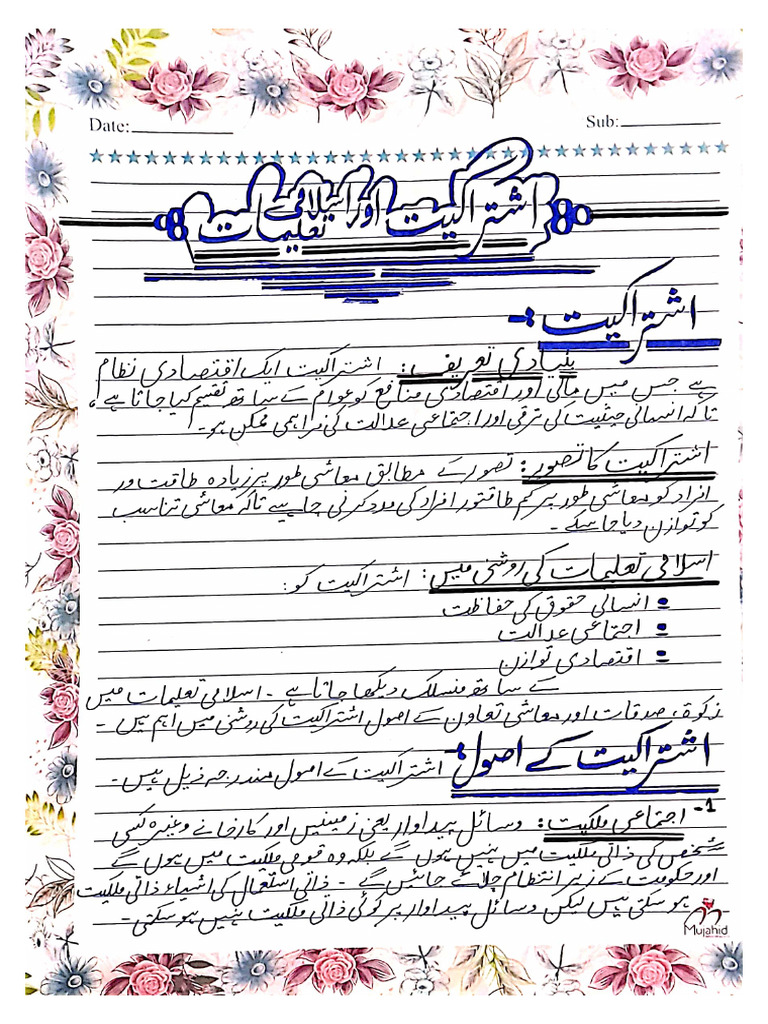 Date: Sub:
اشتراکیت اور اسلامی تعلیمات
اشتراکیت :-
بنیادی تعریف : اشتراکیت ایک اقتصادی نظام
ہے جس میں مالی اور اقتصادی منافع کو عوام کے ساتھ تقسیم کیا جاتا ہے ،
تاکہ انسانی حیثیت کی ترقی اور اجتماعی عدالت کی فراہمی ممکن ہو۔
اشتراکیت کا تصور : تصور کے مطابق معاشی طور پر زیادہ طاقت ور
افراد کو معاشی طور پر کم طاقتور افراد کی مدد کرنی چاہیے تاکہ معاشی تناسب
کو توازن دیا جا سکے ۔
اسلامی تعلیمات کی روشنی میں : اشتراکیت کو :
انسانی حقوق کی حفاظت
اجتماعی عدالت
اقتصادی توازن
کے ساتھ منسلک دیکھا جاتا ہے ۔ اسلامی تعلیمات میں
زکوۃ ، صدقات اور معاشی تعاون کے اصول اشتراکیت کی روشنی میں اہم ہیں ۔
اشتراکیت کے اصول : اشتراکیت کے اصول مندرجہ ذیل ہیں ۔
1- اجتماعی ملکیت : وسائل پیداوار یعنی زمینیں اور کارخانے وغیرہ کسی
شخص کی ذاتی ملکیت میں نہیں ہوں گے بلکہ وہ قومی ملکیت میں ہوں گے
اور حکومت کے زیر انتظام چلائے جائیں گے ۔ ذاتی استعمال کی اشیاء ذاتی ملکیت
ہو سکتی ہیں لیکن وسائل پیداوار پر کوئی ذاتی ملکیت نہیں ہو سکتی ۔
Mujahid